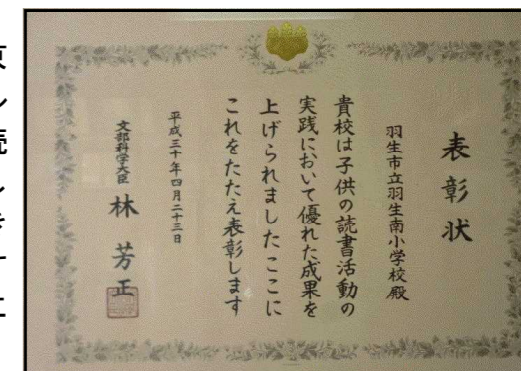 表彰状
羽生市立羽生南小学校殿
貴校は子供の読書活動の
実践において優れた成果を
上げられましたここに
これをたたえ表彰します
平成三十年四月二十三日
文部科学大臣 林芳正